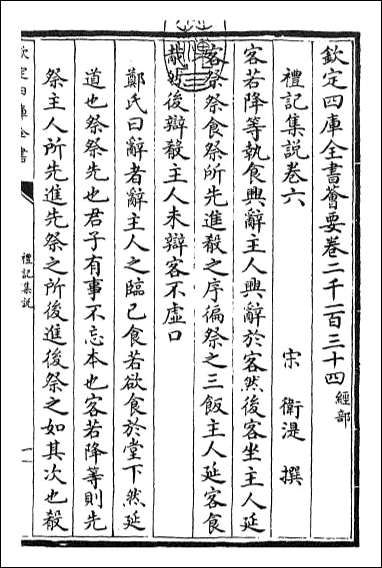 欽定四庫全書薈要卷二千一百三十四 經部
禮記集說卷六
宋 衛湜 撰
客若降等執食興辭主人興辭於客然後客坐主人延
客祭祭食祭所先進殽之序徧祭之三飯主人延客食
胾然後辯殽主人未辯客不虛口
鄭氏曰辭者辭主人之臨己食若欲食於堂下然延
道也祭祭先也君子有事不忘本也客若降等則先
祭主人所先進先祭之所後進後祭之如其次也殽
欽定四庫全書
禮記集說
一